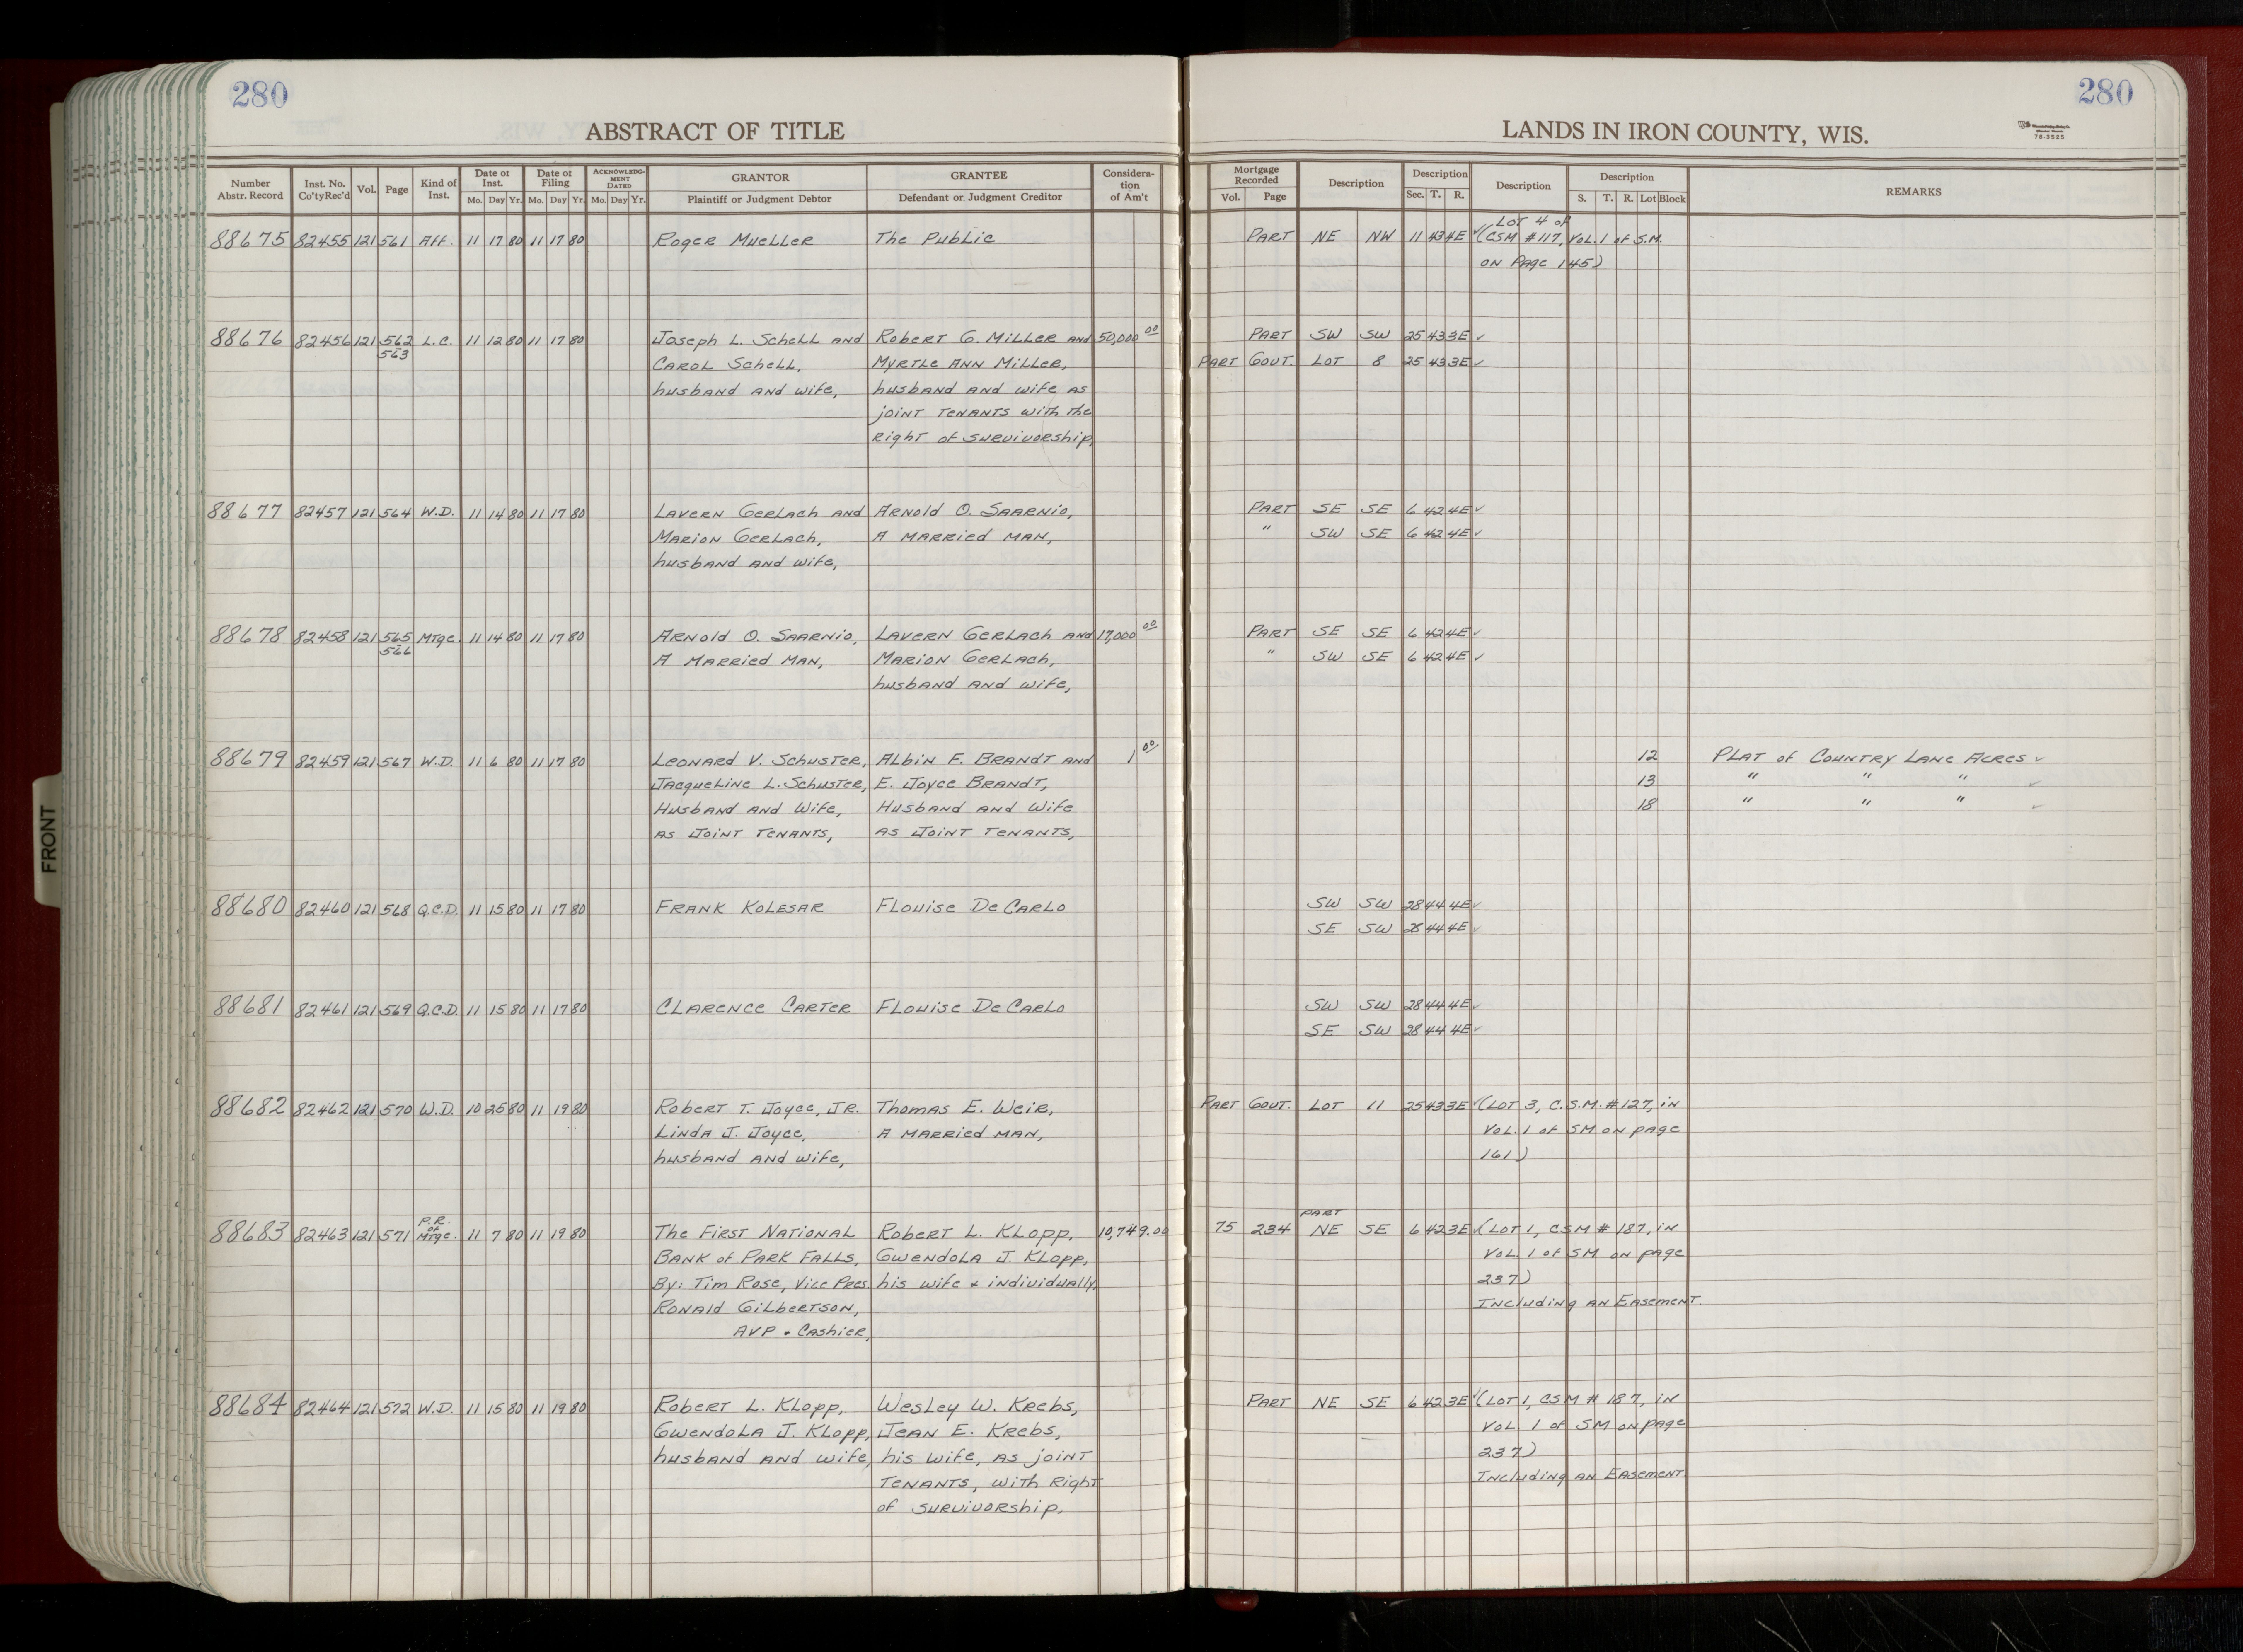 280
280
ABSTRACT OF TITLE
LANDS IN IRON COUNTY, WIS.
78-3525
Number Abstr. Record | Inst. No. Co'ty Rec'd | Vol. | Page | Kind of Inst. | Date of Inst. Mo. Day Yr. | Date of Filing Mo. Day Yr. | ACKNOWLEDGMENT DATED Mo. Day Yr. | GRANTOR Plaintiff or Judgment Debtor | GRANTEE Defendant or Judgment Creditor | Consideration of Am't | Mortgage Recorded Vol. Page | Description | Description Sec. T. R. | Description | Description S. T. R. Lot Block | REMARKS
88675 82455 121 561 Aff. 11 17 80 11 17 80 Roger Mueller The Public PART NE NW 11 43 4E ✓ (LOT 4 of
CSM #117, VOL. 1 of S.M.
ON PAGE 145)
88676 82456 121 562 L.C. 11 12 80 11 17 80 Joseph L. Schell and Robert G. Miller and 50,000 00 PART SW SW 25 43 3E ✓
563 Carol Schell, Myrtle Ann Miller, PART GOVT. LOT 8 25 43 3E ✓
husband and wife, husband and wife as
joint tenants with the
right of survivorship,
88677 82457 121 564 W.D. 11 14 80 11 17 80 Lavern Gerlach and Arnold O. Saarnio, PART SE SE 6 42 4E ✓
Marion Gerlach, A married man, " SW SE 6 42 4E ✓
husband and wife,
88678 82458 121 565 Mtge. 11 14 80 11 17 80 Arnold O. Saarnio, Lavern Gerlach and 17,000 00 PART SE SE 6 42 4E ✓
566 A Married Man, Marion Gerlach, " SW SE 6 42 4E ✓
husband and wife,
88679 82459 121 567 W.D. 11 6 80 11 17 80 Leonard V. Schuster, Albin F. Brandt and 1 00 12 PLAT of COUNTRY LANE ACRES ✓
Jacqueline L. Schuster, E. Joyce Brandt, 13 " " " ✓
Husband and Wife, Husband and Wife 18 " " " ✓
as Joint Tenants, as Joint Tenants,
88680 82460 121 568 Q.C.D. 11 15 80 11 17 80 Frank Kolesar Flouise DeCarlo SW SW 28 44 4E ✓
SE SW 28 44 4E ✓
88681 82461 121 569 Q.C.D. 11 15 80 11 17 80 Clarence Carter Flouise DeCarlo SW SW 28 44 4E ✓
SE SW 28 44 4E ✓
88682 82462 121 570 W.D. 10 25 80 11 19 80 Robert T. Joyce, Jr. Thomas E. Weir, PART GOVT. LOT 11 25 43 3E ✓ (LOT 3, C.S.M. #127, in
Linda J. Joyce, A married man, VOL. 1 of SM on page
husband and wife, 161)
88683 82463 121 571 P.R. of Mtge. 11 7 80 11 19 80 The First National Robert L. Klopp, 10,749.00 75 234 PART NE SE 6 42 3E ✓ (LOT 1, CSM # 187, in
Bank of Park Falls, Gwendola J. Klopp, VOL. 1 of SM on page
By: Tim Rose, Vice Pres. his wife & individually, 237)
Ronald Gilbertson, Including an Easement.
AVP & Cashier,
88684 82464 121 572 W.D. 11 15 80 11 19 80 Robert L. Klopp, Wesley W. Krebs, PART NE SE 6 42 3E ✓ (LOT 1, CSM # 187, in
Gwendola J. Klopp, Jean E. Krebs, VOL. 1 of SM on page
husband and wife, his wife, as joint 237)
tenants, with right Including an Easement.
of survivorship.
FRONT